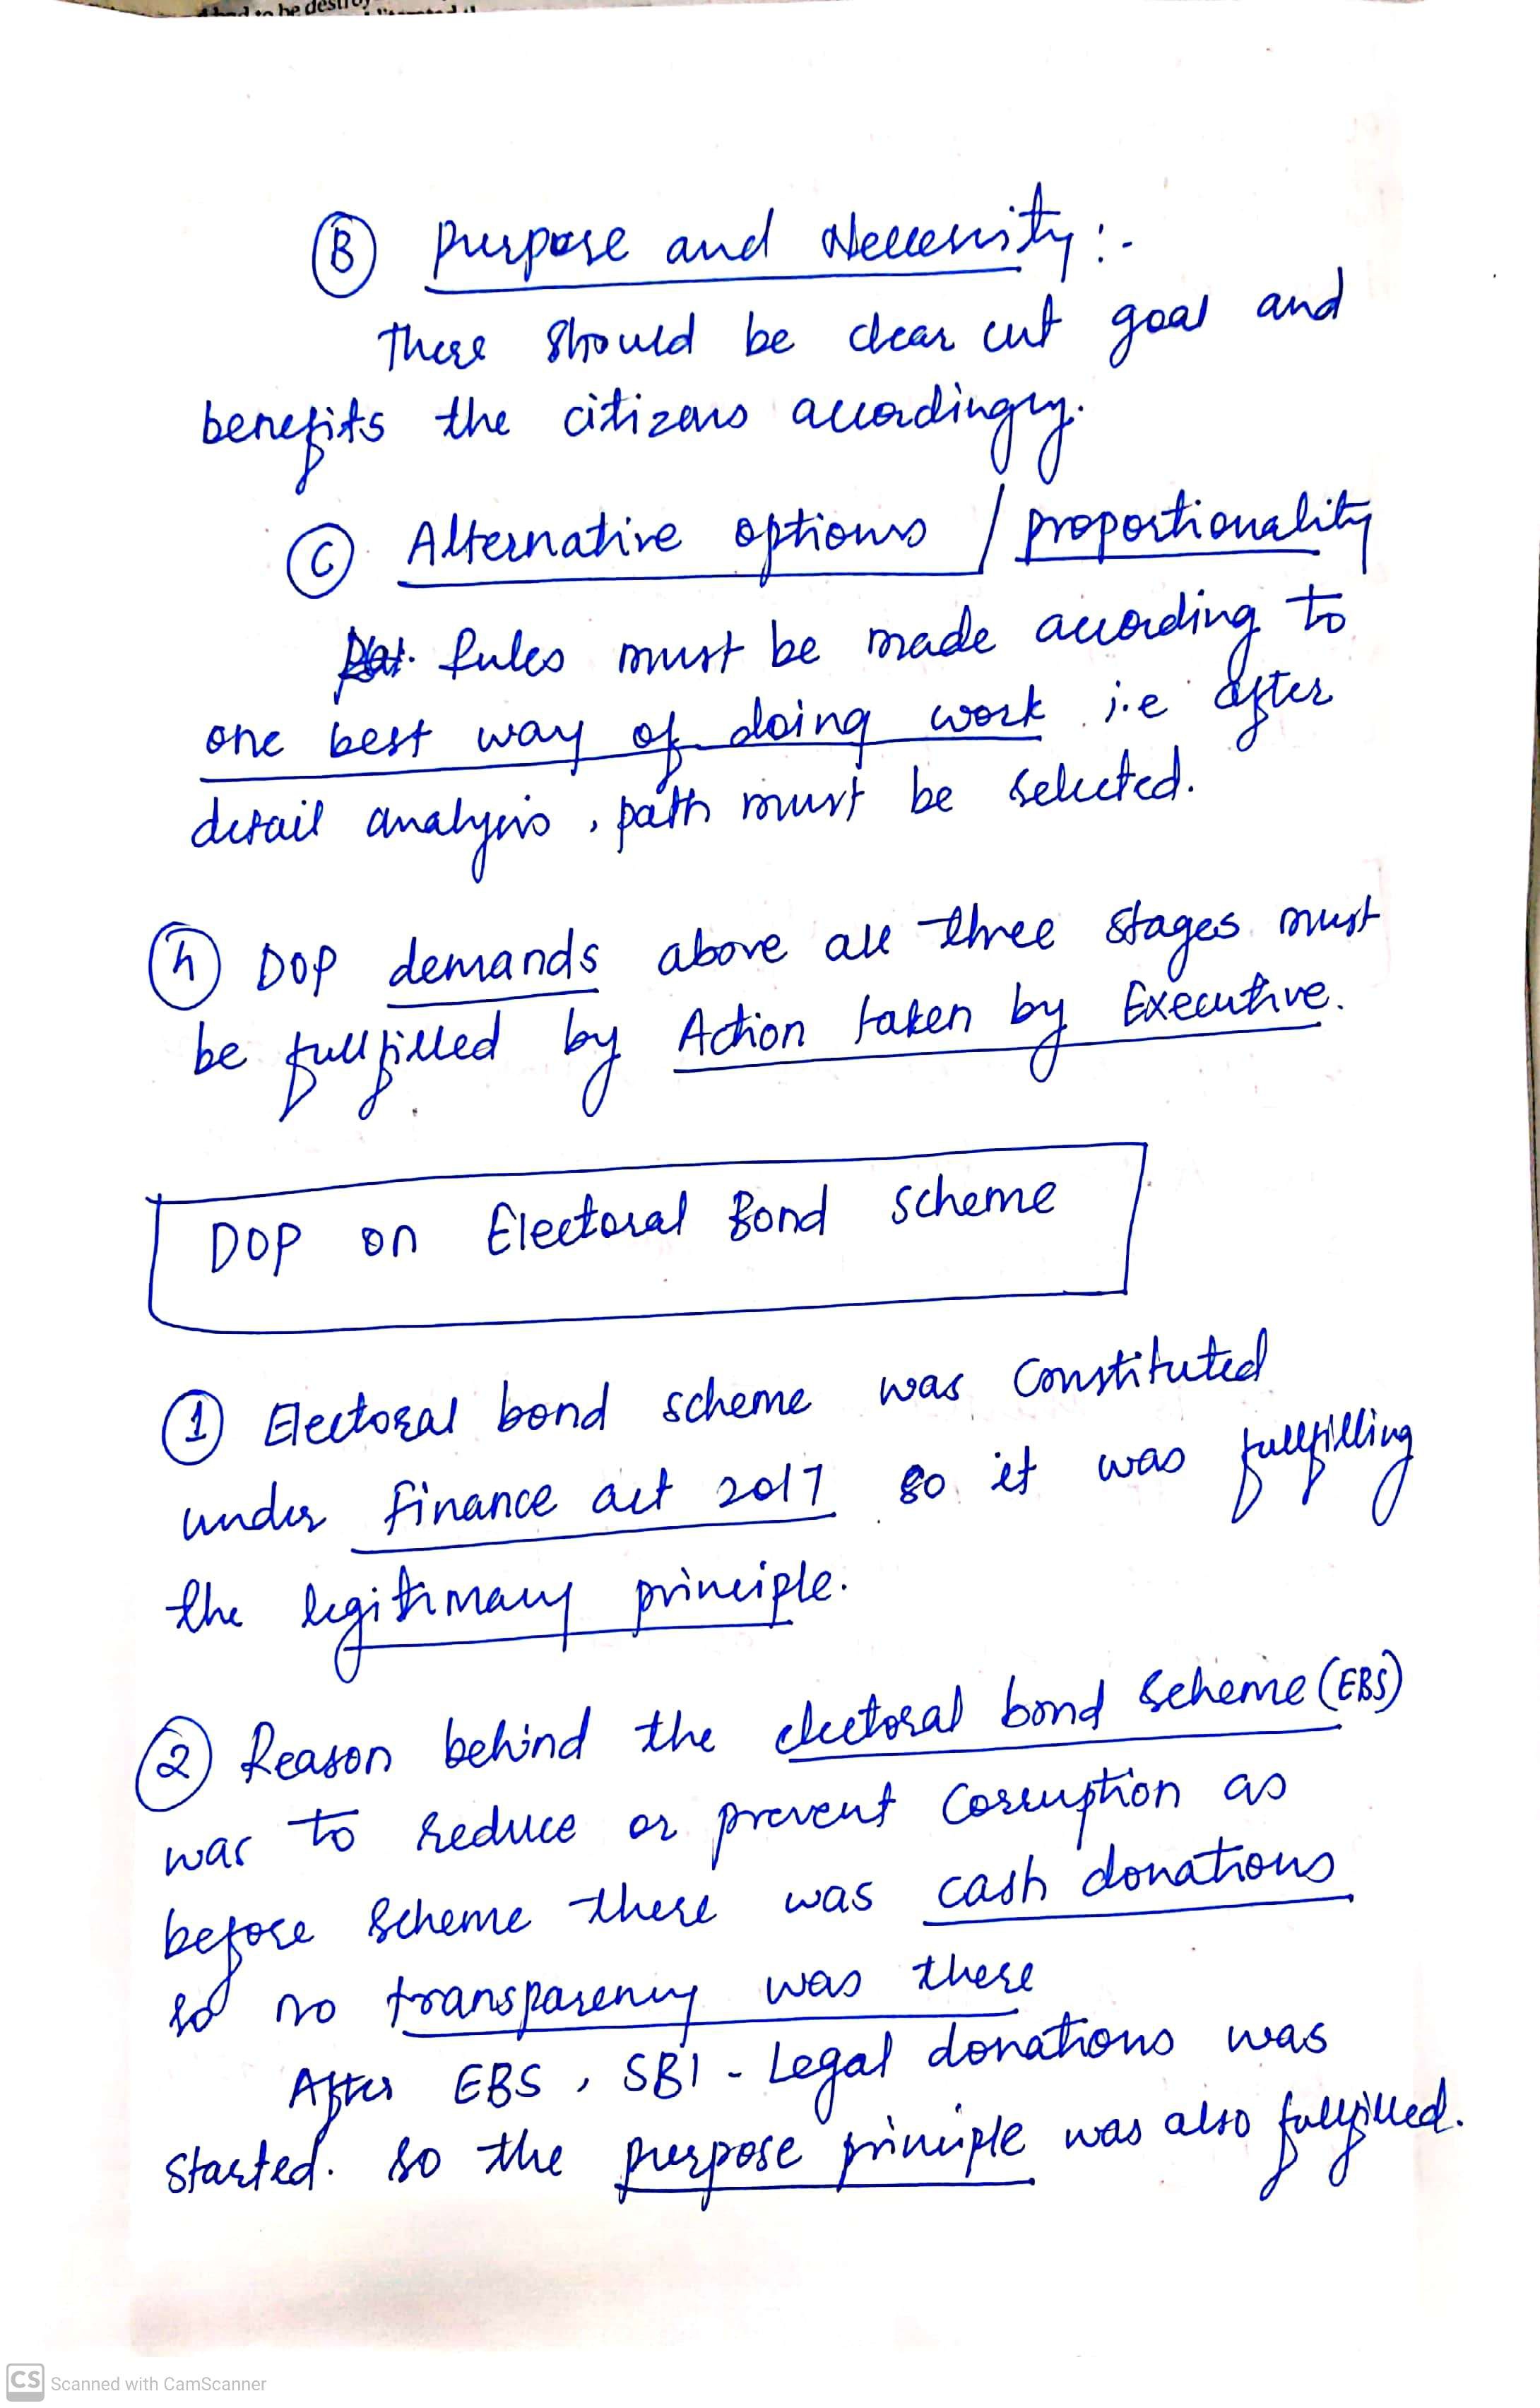 had to be destroy
Ⓑ Purpose and Necessity :-
There should be clear cut goal and
benefits the citizens accordingly.
Ⓒ Alternative options / proportionality
Rules must be made according to
one best way of doing work i.e after
detail analysis, path must be selected.
④ DOP demands above all three stages must
be fullfilled by Action taken by Executive.
DOP on Electoral Bond scheme
① Electoral bond scheme was constituted
under finance act 2017 so it was fullfilling
the legitimacy principle.
② Reason behind the electoral bond scheme (EBS)
was to reduce or prevent corruption as
before scheme there was cash donations
so no transparency was there
After EBS, SBI - Legal donations was
started. so the purpose principle was also fullfilled.
CS Scanned with CamScanner